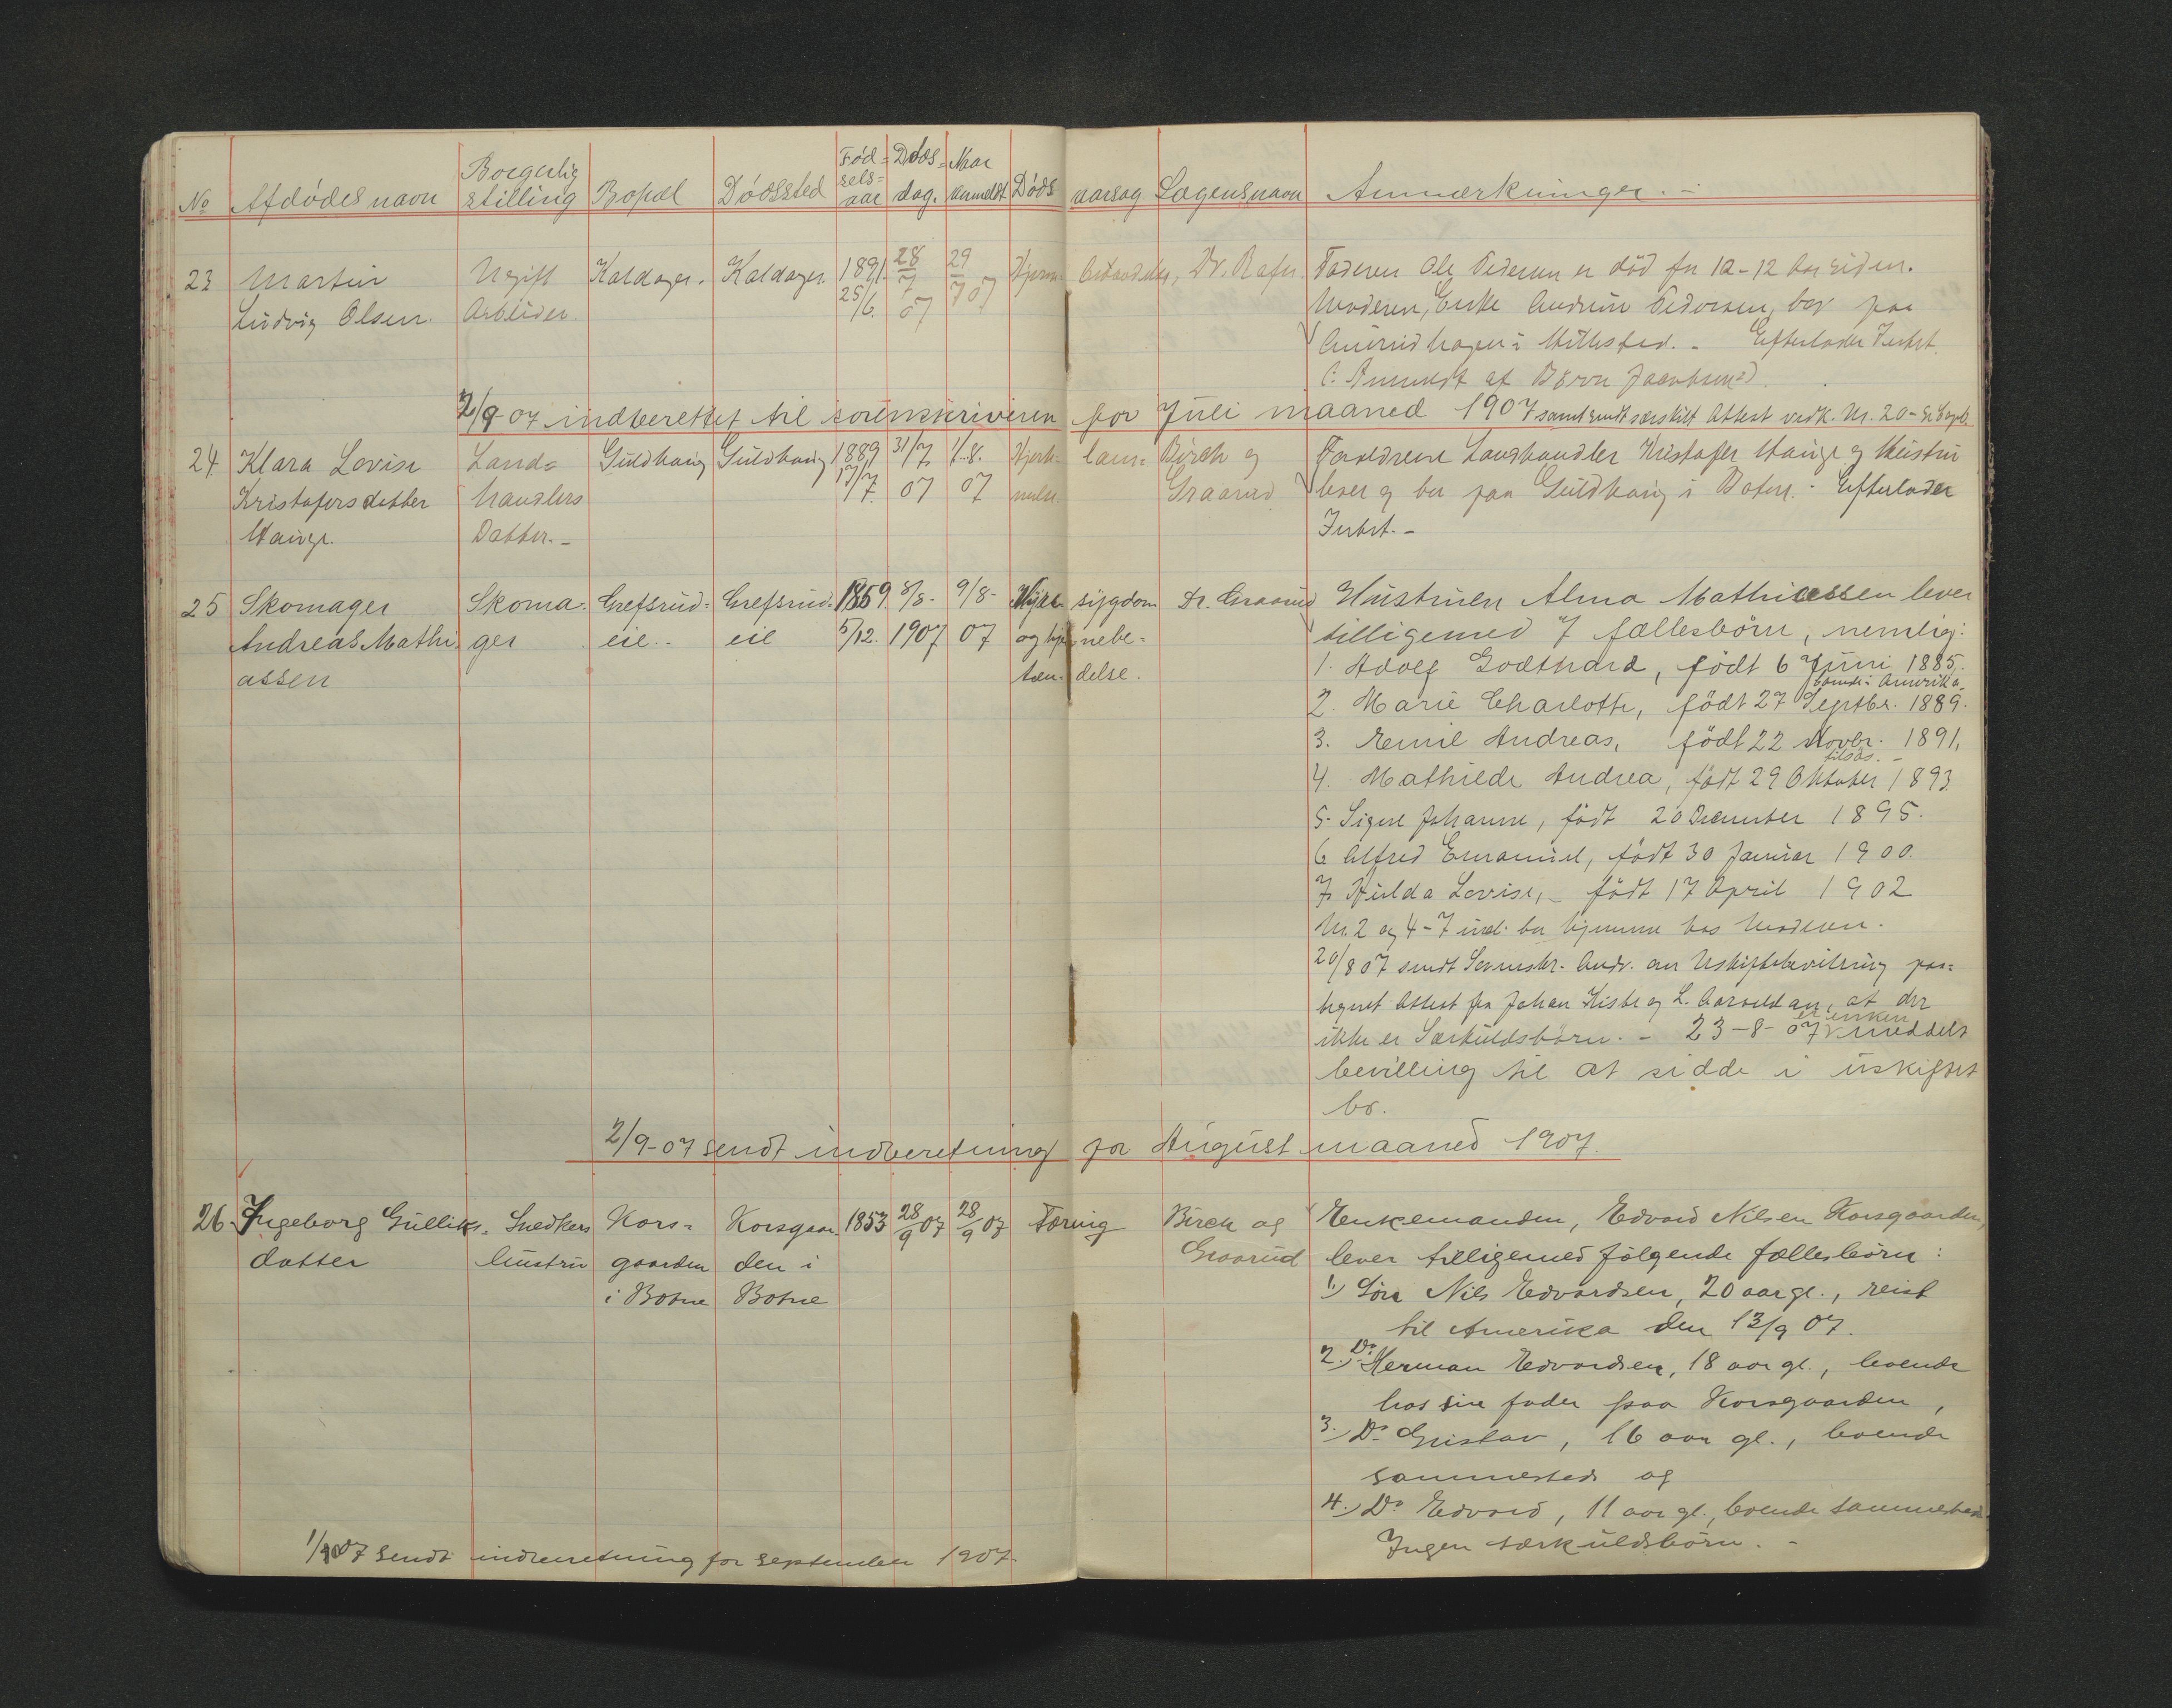 No Afdødes navn Borgerlig stilling Bopæl Dødssted Fød=sels=aar Døds=dag. Naar anmeldt Døds aarsag Lægens navn Anmærkninger. -
23 Martin Ugift Kaldager. Kaldager. 1891. 28/7 29/7 07 Hjerne betændelse, Dr. Rafn. Faderen Ole Pedersen er død for 10-12 Aar siden.
Ludvig Olsen. Arbeider. 25/6. 07 Moderen, Enke Andrine Pedersen, bor paa
i Hillestad. - Efterlader Intet.
(: Anmeldt af Jacobsen :)
2/9 07 indberettet til sorenskriveren for Juli maaned 1907 samt sendt særskilt Attest vedk. Nr. 20 -
24 Klara Lovise Land= Guldhaug Guldhaug 1889 31/7 1/8. Hjerte= lam= Birch og Forældrene Landhandler Kristofer Hauge og Hustru
Kristofersdatter handlers 17/7. 07 07 melse Graarud lever og bor paa Guldhaug i Botne. - Efterlader
Hauge. Datter. - Intet. -
25 Skomager Skoma= Grefsrud= Grefsrud= 1859 8/8- 9/8- sygdom Dr. Graarud Hustruen Alma Mathiassen lever
Andreas Mathi= ger eie.. eie 5/12. 1907 07 og nebe= tilligemed 7 fællesbørn, nemlig:
assen tæn= delse. 1. Adolf Godthard, født 6 Juni 1885.
boende i Amerika.
2. Marie Charlotte, født 27 Septbr. 1889.
3. Emil Andreas, født 22 Novbr. 1891,
tilsøs. -
4. Mathilde Andrea, født 29 Oktober 1893.
5. Signe Johanne, født 20 December 1895.
6. Alfred Emanuel, født 30 Januar 1900.
7. Hulda Lovise, - født 17 April 1902
Nr. 2 og 4-7 incl. bor hjemme hos Moderen.
20/8 07 sendt Sorenskr. Andr. om Uskiftebevilling paa=
tegnet Attest fra Johan og L. an, at der
ikke er Særkuldsbørn. - 23-8-07 er enken meddelt
bevilling til at sidde i uskiftet
bo.
2/9-07 sendt indberetning for August maaned 1907.
26 Ingeborg Gulliks= Snedkers Kors= Korsgaar 1853 28/9 07 28/9 07 Tæring Birch og Enkemanden, Edvard Nilsen Korsgaarden,
datter hustru gaarden den i Graarud lever tilligemed følgende fællesbørn:
i Botne Botne 1.) Søn Nils Edvardsen, 20 aar gl., reist
til Amerika den 13/9 07.
2.) Do Herman Edvardsen, 18 aar gl., boende
hos sin fader paa Korsgaarden,
3.) Do Gustav, 16 aar gl., boende
sammesteds og
4.) Do Edvard, 11 aar gl., boende sammesteds
Ingen særkuldsbørn. -
1/10 07 sendt indberetning for september 1907.